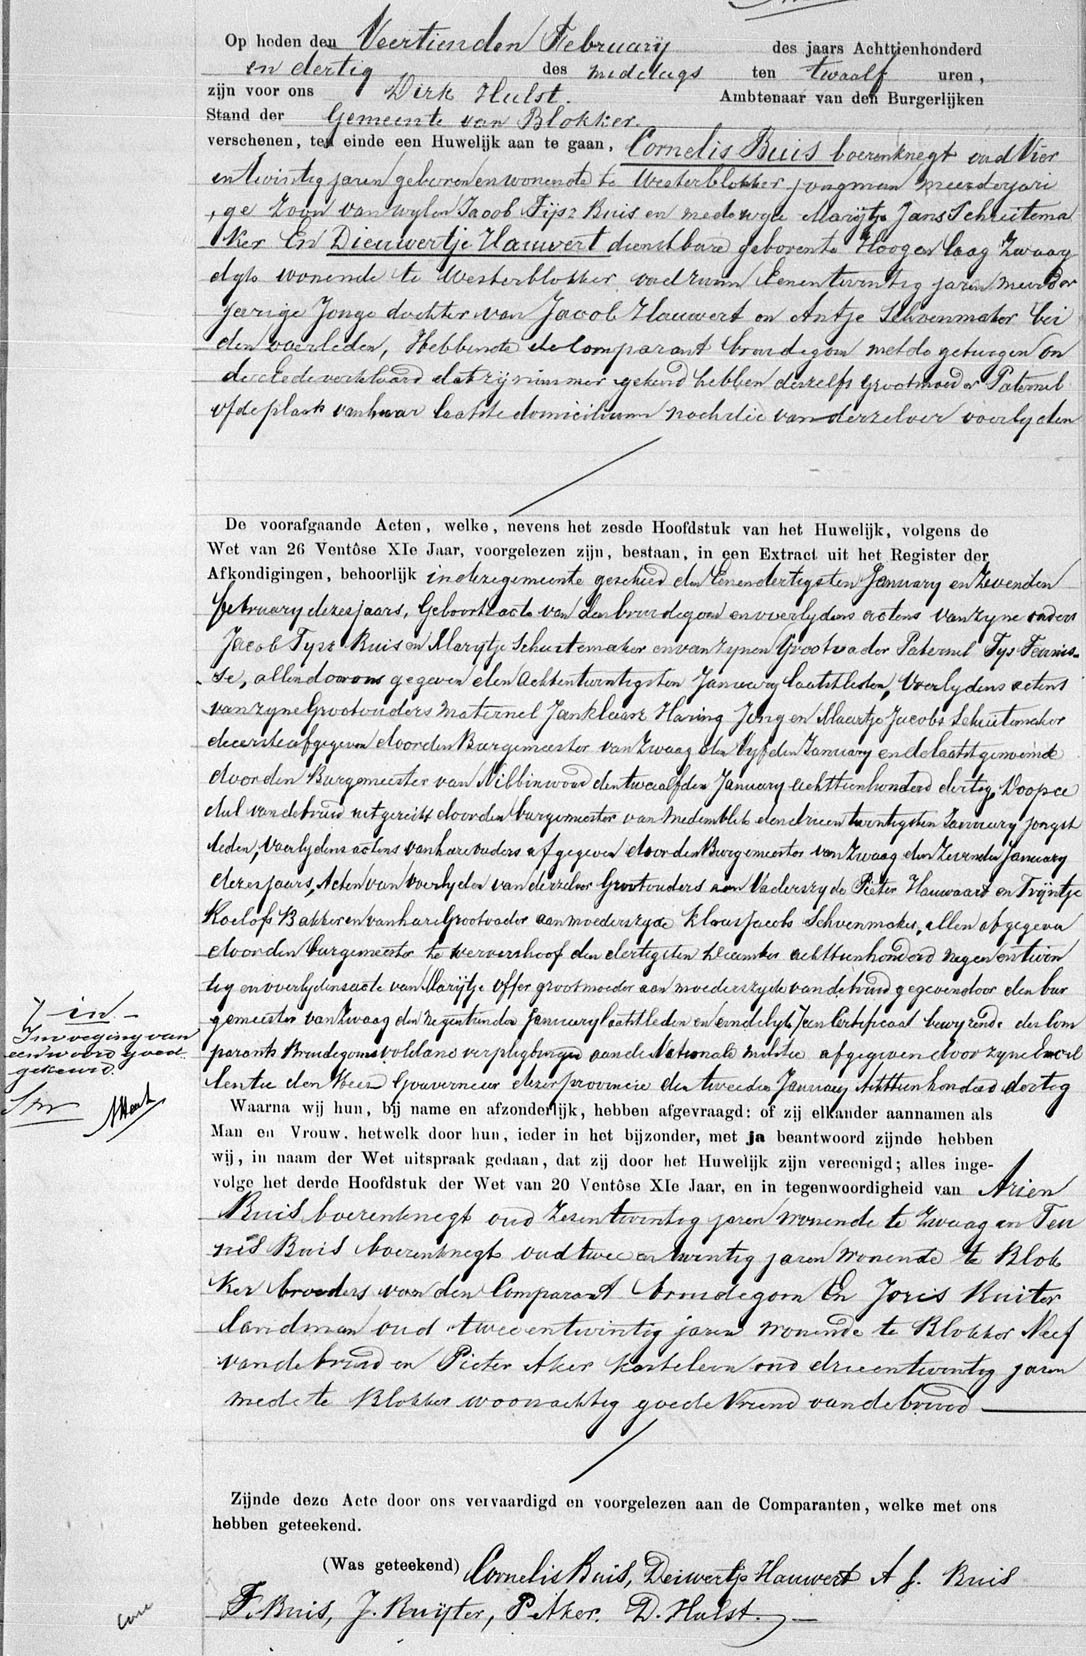 Op heden den Veertienden February des jaars Achttienhonderd
en dertig des middags ten twaalf uren,
zijn voor ons Dirk Hulst. Ambtenaar van den Burgerlijken
Stand der Gemeente van Blokker
verschenen, ten einde een Huwelijk aan te gaan, Cornelis Buis boerenknegt oud Vier
entwintig jaren geboren en wonende te Westerblokker jongman meerderjari
ge Zoon van wylen Jacob Tijsz Buis en mede wyle Marijtje Jans Schuitema
ker En Dieuwertje Hauwert dienstbare geboren te Hoog en laag Zwaag
dyk wonende te Westerblokker oud ruim Eenentwintig jaren meerder
jarige Jonge dochter van Jacob Hauwert en Antje Schoenmaker bei
den overleden, Hebbende de Comparant bruidegom met de getuigen on
der Eede verklaard dat zy nimmer gekend hebben deszelfs Grootmoeder Paternel
of de plaats van haar laatste domicilium noch die van derzelver overlyden
De voorafgaande Acten, welke, nevens het zesde Hoofdstuk van het Huwelijk, volgens de
Wet van 26 Ventôse XIe Jaar, voorgelezen zijn, bestaan, in een Extract uit het Register der
Afkondigingen, behoorlijk in deze gemeente geschied den Eenendertigsten January en Zevenden
february dezes jaars, Geboorteacte van den bruidegom en overlydens actens van zyne ouders
Jacob Tysz Buis en Marytje Schuitemaker en van zynen Grootvader Paternel Tys Teunis-
se, allen door ons gegeven den achtentwintigsten January laatstleden, Overlydens actens
van zyne Grootouders maternel Jan Klaasz Haring Jong en Maartje Jacobs Schuitemaker
de eerste afgegeven door den Burgemeester van Zwaag den Vyfden January en de laatstgenoemde
door den Burgemeester van Nibbixwoud den twaalfden January achttienhonderd dertig, Doopce
dul van de bruid uitgereikt door den burgemeester van Medemblik den drieentwintigsten January jongst
leden, overlydens actens van hare ouders afgegeven door den Burgemeester van Zwaag den Zevenden January
dezes jaars, Acten van overlyden van derzelver Grootouders van Vaderszyde Pieter Hauwaart en Tryntje
Roelofs Bakker en van hare Grootvader aan moederszyde Klaas Jacobs Schoenmaker, allen afgegeven
door den burgemeester te Wervershoof den dertigsten December achttienhonderd negenentwin
tig en overlydensacte van Marijtje Offer grootmoeder aan moederszyde van de bruid gegeven door den bur
gemeester van Zwaag den negentienden January laatstleden en eindelyk Een Certificaat bewyzende des Com
parants Bruidegoms voldane verpligtingen aan de Nationale militie afgegeven door zyne Excel
lentie den Heer Gouverneur dezer provincie den tweeden January Achttienhonderd dertig
7 in -
Invoeging van
een woord goed-
gekeurd.
Waarna wij hun, bij name en afzonderlijk, hebben afgevraagd: of zij elkander aannamen als
Man en Vrouw, hetwelk door hun, ieder in het bijzonder, met ja beantwoord zijnde hebben
wij, in naam der Wet uitspraak gedaan, dat zij door het Huwelijk zijn vereenigd; alles inge-
volge het derde Hoofdstuk der Wet van 20 Ventôse XIe Jaar, en in tegenwoordigheid van Arien
Buis boerenknegt oud Zesentwintig jaren wonende te Zwaag en Teu
nis Buis boerenknegt oud twee en twintig jaren wonende te Blok
ker broeders van den Comparant bruidegom En Joris Ruiter
landman oud tweeentwintig jaren wonende te Blokker Neef
van de bruid en Pieter Aker kastelein oud drieentwintig jaren
mede te Blokker woonachtig goede vriend van de bruid
Zijnde deze Acte door ons vervaardigd en voorgelezen aan de Comparanten, welke met ons
hebben geteekend.
(Was geteekend) Cornelis Buis, Deiwertje Hauwert A J. Buis
T. Buis, J. Ruijter, P. Aker. D. Hulst.